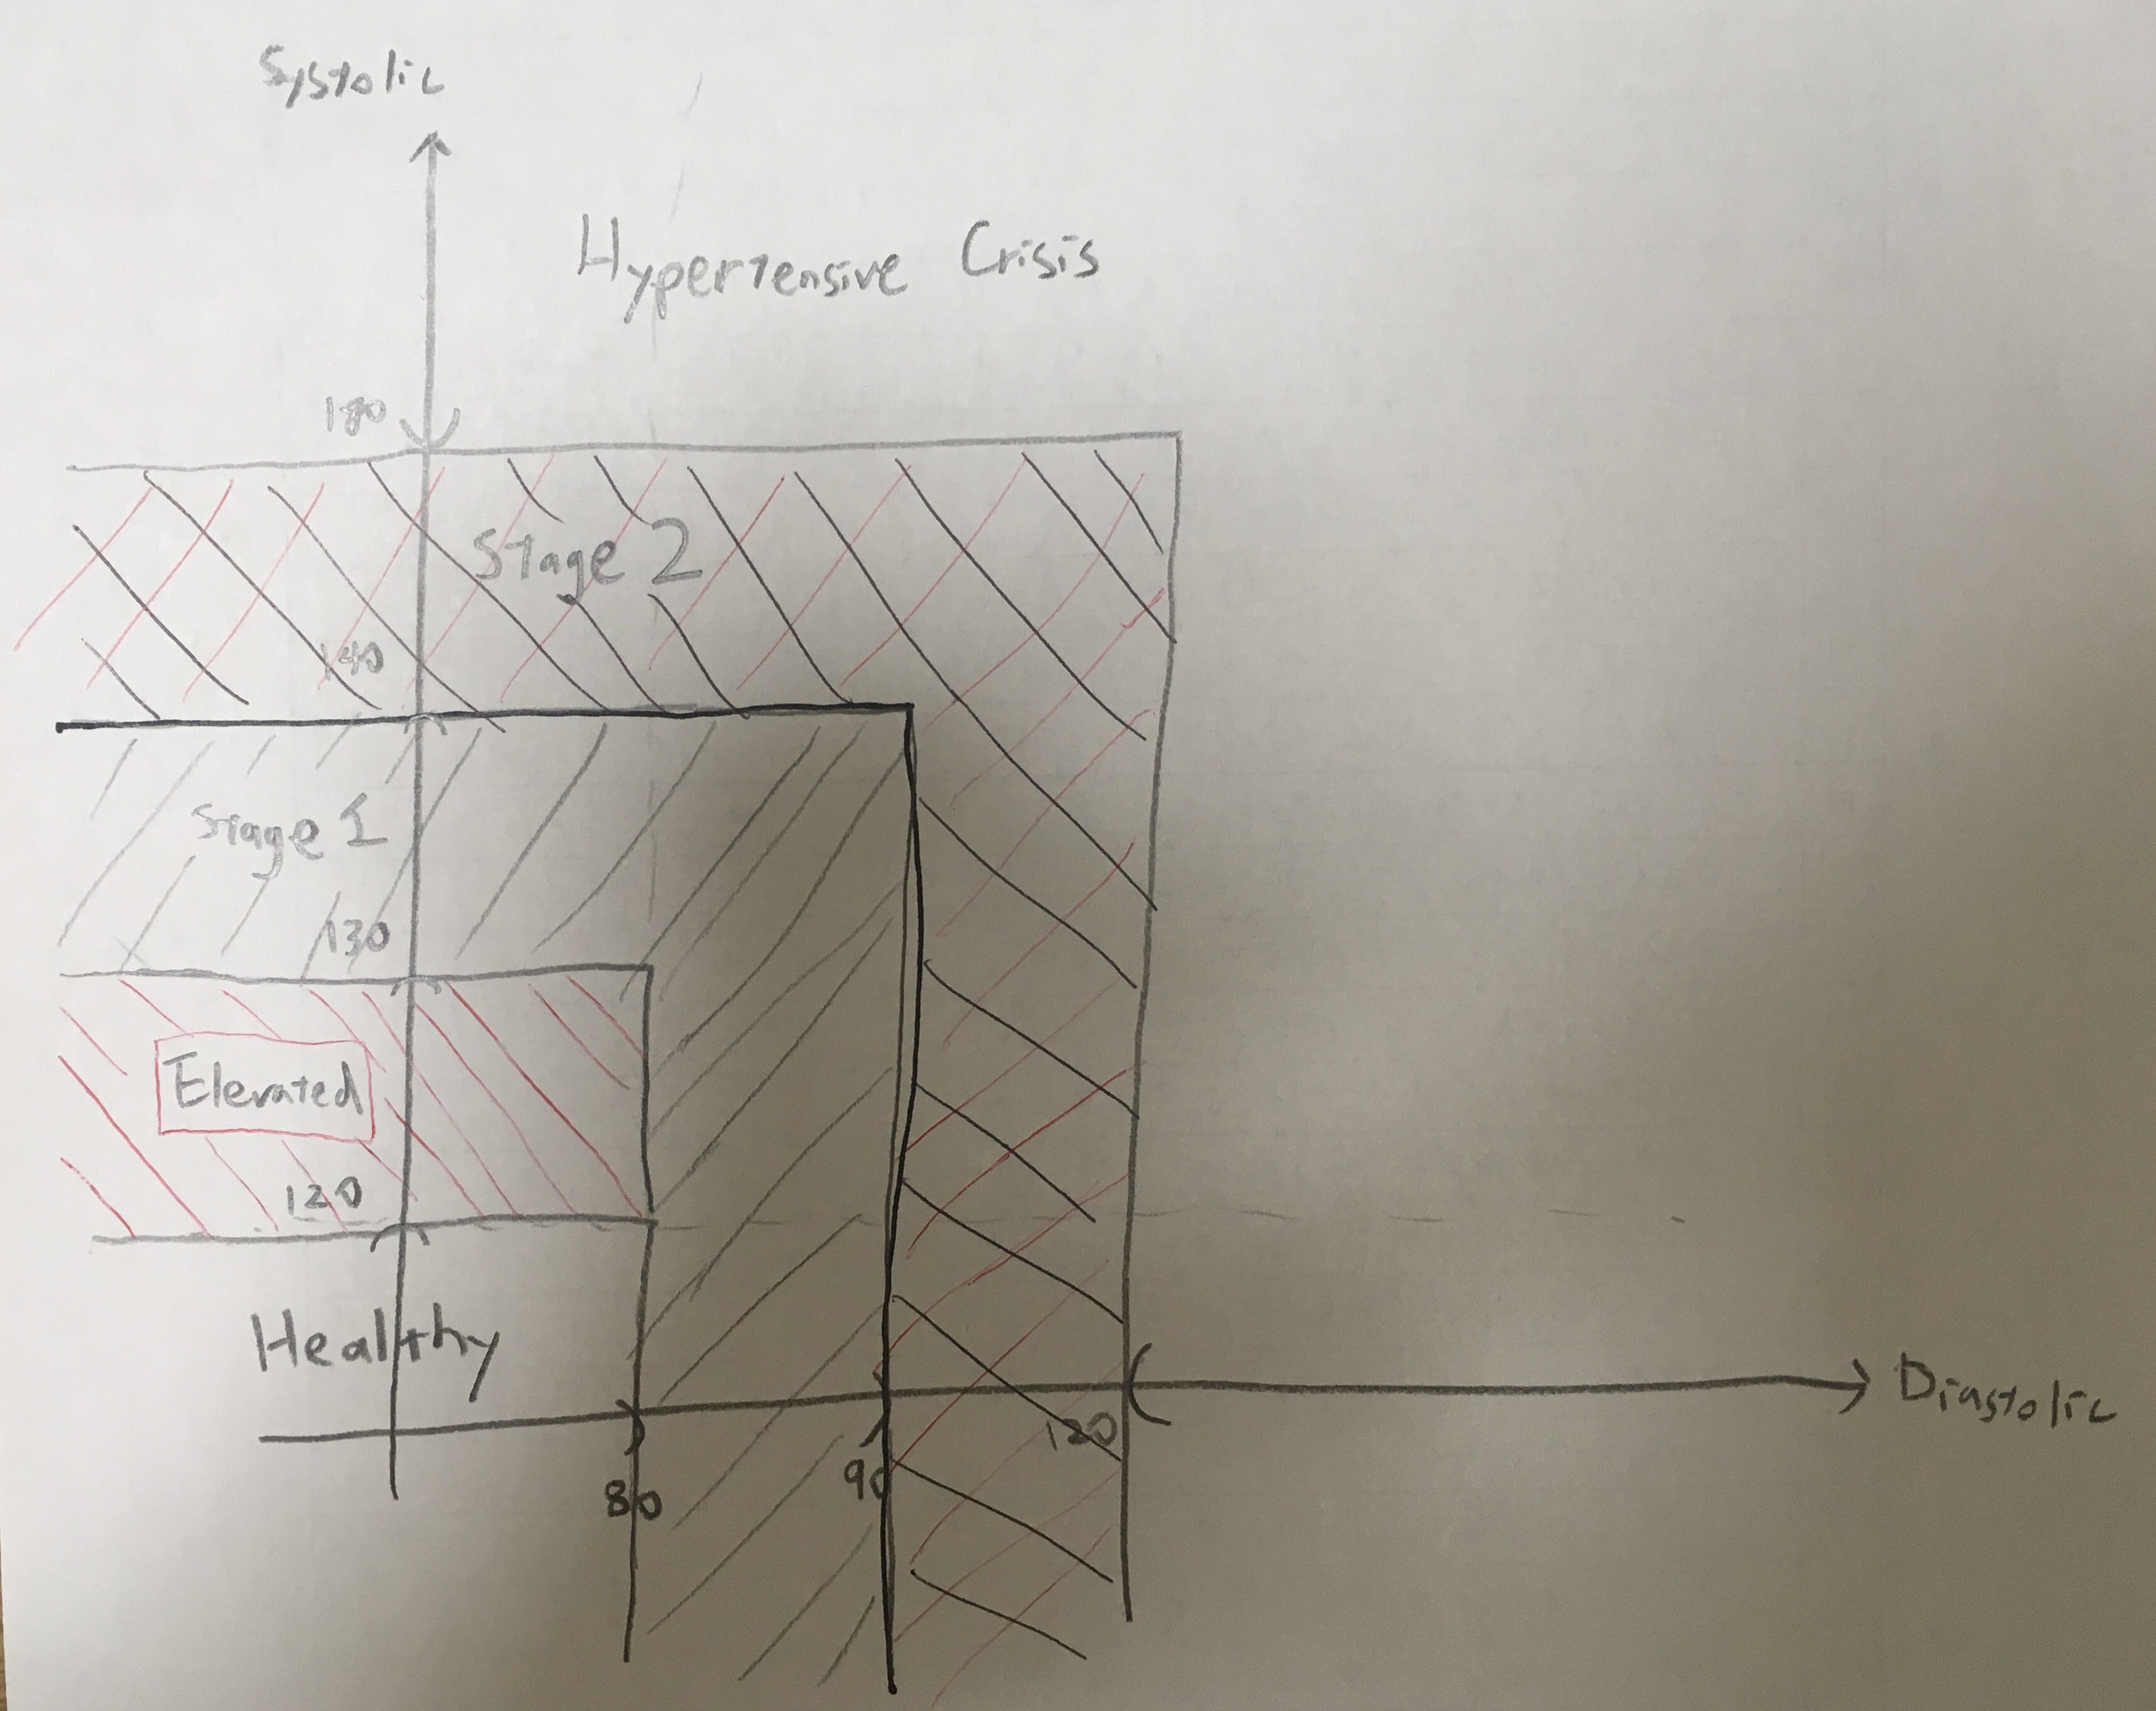 Systolic
Hypertensive Crisis
180
Stage 2
140
Stage 1
130
Elevated
120
Healthy
Diastolic
80
90
120